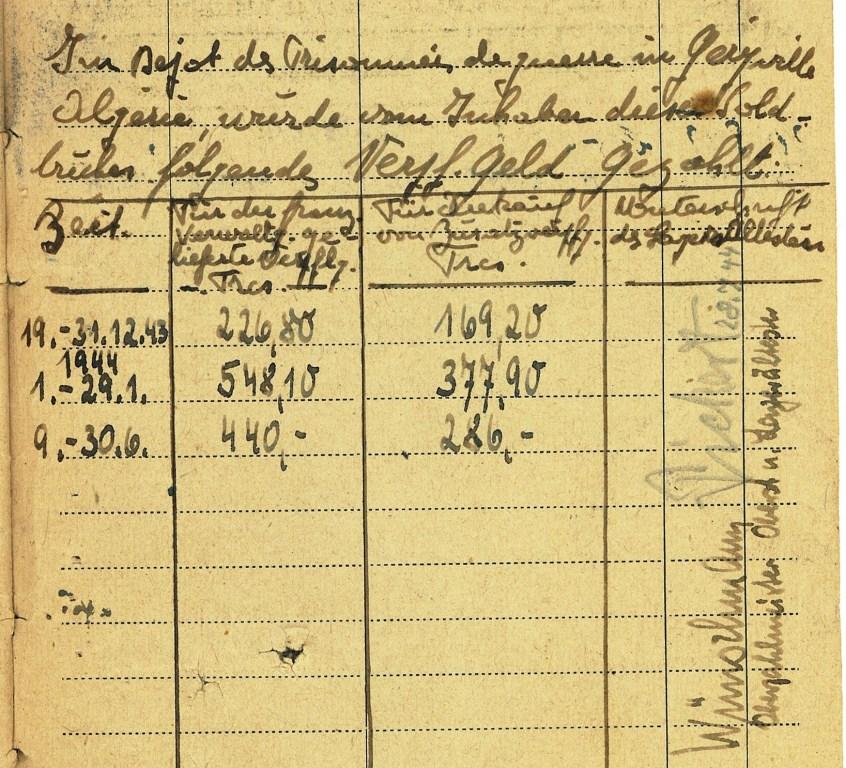 Im Depot des Prisonniers de guerre in Geryville
Algérie, wurde vom Inhaber dieses Sold-
buches folgendes Verpf. Geld gezahlt:
Zeit.
Für der franz.
Verwaltg. ge-
lieferte Verpflg.
Frcs.
Für Einkauf
von Zusatzverpflg.
Frcs.
Unterschrift
des Lagerältesten
19.-31.12.43 226,80 169,20
1944
1.-29.1. 548,10 377,90
9.-30.6. 440,- 286,-
28.7.44
Oberzahlmeister Oberst u. Lagerältester